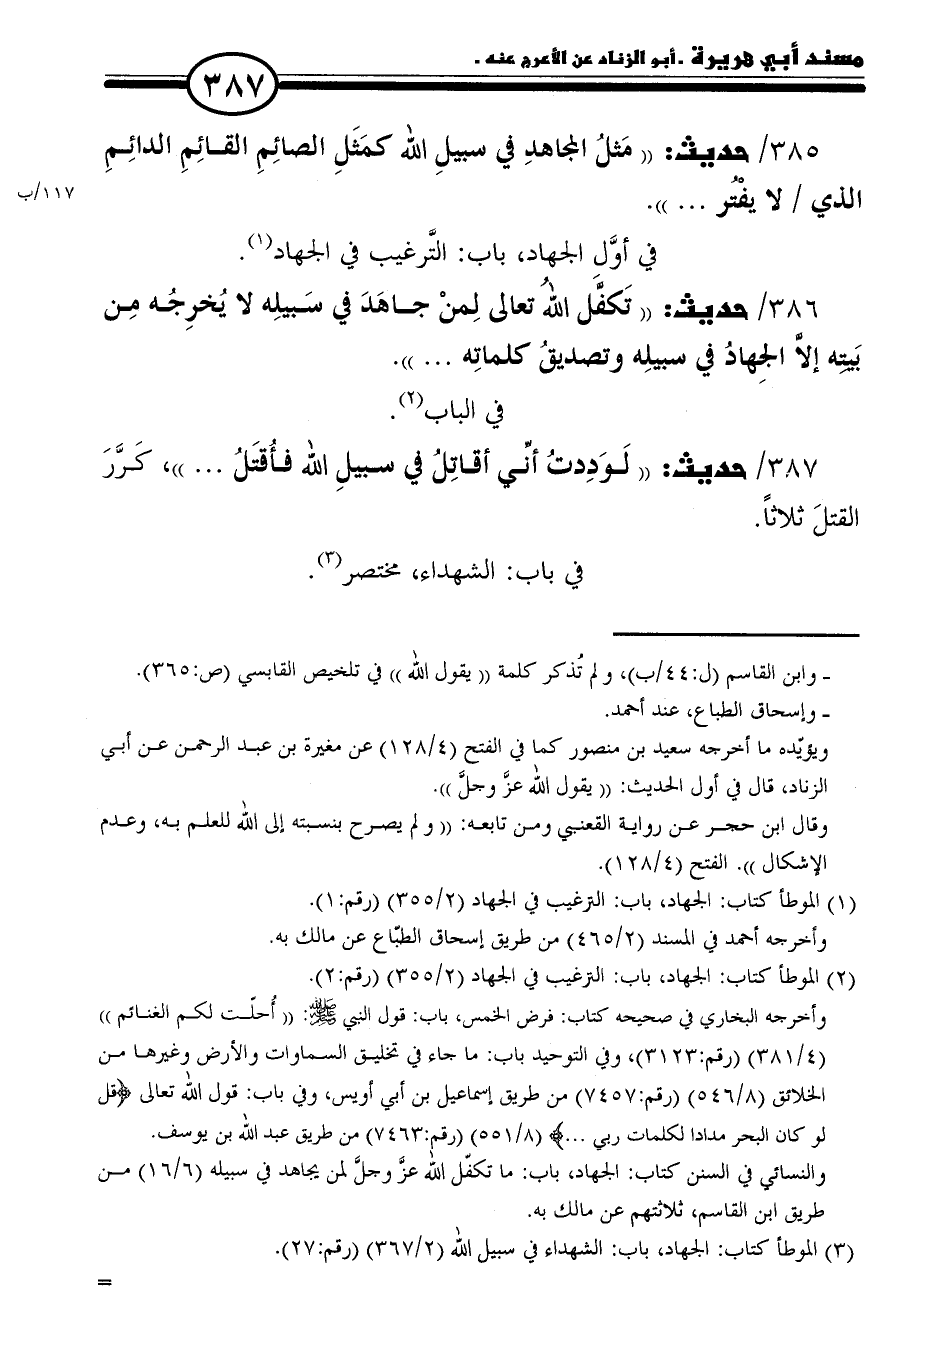 مسند أبي هريرة .أبو الزناد عن الأعرج عنه .
٣٨٧
٣٨٥/ حديث: (( مَثلُ المجاهدِ في سبيلِ الله كمَثَلِ الصائمِ القائمِ الدائمِ
الذي / لا يفْتُر ... )).
١١٧/ب
في أوَّل الجهاد، باب: التَّرغيب في الجهاد(١).
٣٨٦/ حديث: (( تَكفَّل اللهُ تعالى لِمنْ جاهَدَ في سَبيلِه لا يُخرِجُه مِن
بَيتِه إلاَّ الجِهادُ في سبيلِه وتصديقُ كلماتِه ... )).
في الباب(٢).
٣٨٧/ حديث: (( لَوَدِدتُ أنِّي أقاتِلُ في سبيلِ الله فأُقتَلُ ... ))، كَرَّرَ
القتلَ ثلاثاً.
في باب: الشهداء، مختصر(٣).
ـ وابن القاسم (ل:٤٤/ب)، و لم تُذكر كلمة (( يقول الله )) في تلخيص القابسي (ص:٣٦٥).
ـ وإسحاق الطباع، عند أحمد.
ويؤيّده ما أخرجه سعيد بن منصور كما في الفتح (١٢٨/٤) عن مغيرة بن عبد الرحمن عن أبي
الزناد، قال في أول الحديث: (( يقول الله عزَّ وجلَّ )).
وقال ابن حجر عن رواية القعنبي ومن تابعه: (( و لم يصرح بنسبته إلى الله للعلم به، وعدم
الإشكال )). الفتح (١٢٨/٤).
(١) الموطأ كتاب: الجهاد، باب: الترغيب في الجهاد (٣٥٥/٢) (رقم:١).
وأخرجه أحمد في المسند (٤٦٥/٢) من طريق إسحاق الطبّاع عن مالك به.
(٢) الموطأ كتاب: الجهاد، باب: الترغيب في الجهاد (٣٥٥/٢) (رقم:٢).
وأخرجه البخاري في صحيحه كتاب: فرض الخمس، باب: قول النبي ﷺ: (( أُحلّت لكم الغنائم ))
(٣٨١/٤) (رقم:٣١٢٣)، وفي التوحيد باب: ما جاء في تخليق السماوات والأرض وغيرها من
الخلائق (٥٤٦/٨) (رقم:٧٤٥٧) من طريق إسماعيل بن أبي أويس، وفي باب: قول الله تعالى ﴿قل
لو كان البحر مدادا لكلمات ربي ...﴾ (٥٥١/٨) (رقم:٧٤٦٣) من طريق عبد الله بن يوسف.
والنسائي في السنن كتاب: الجهاد، باب: ما تكفّل الله عزَّ وجلَّ لمن يجاهد في سبيله (١٦/٦) من
طريق ابن القاسم، ثلاثتهم عن مالك به.
(٣) الموطأ كتاب: الجهاد، باب: الشهداء في سبيل الله (٣٦٧/٢) (رقم:٢٧).
=